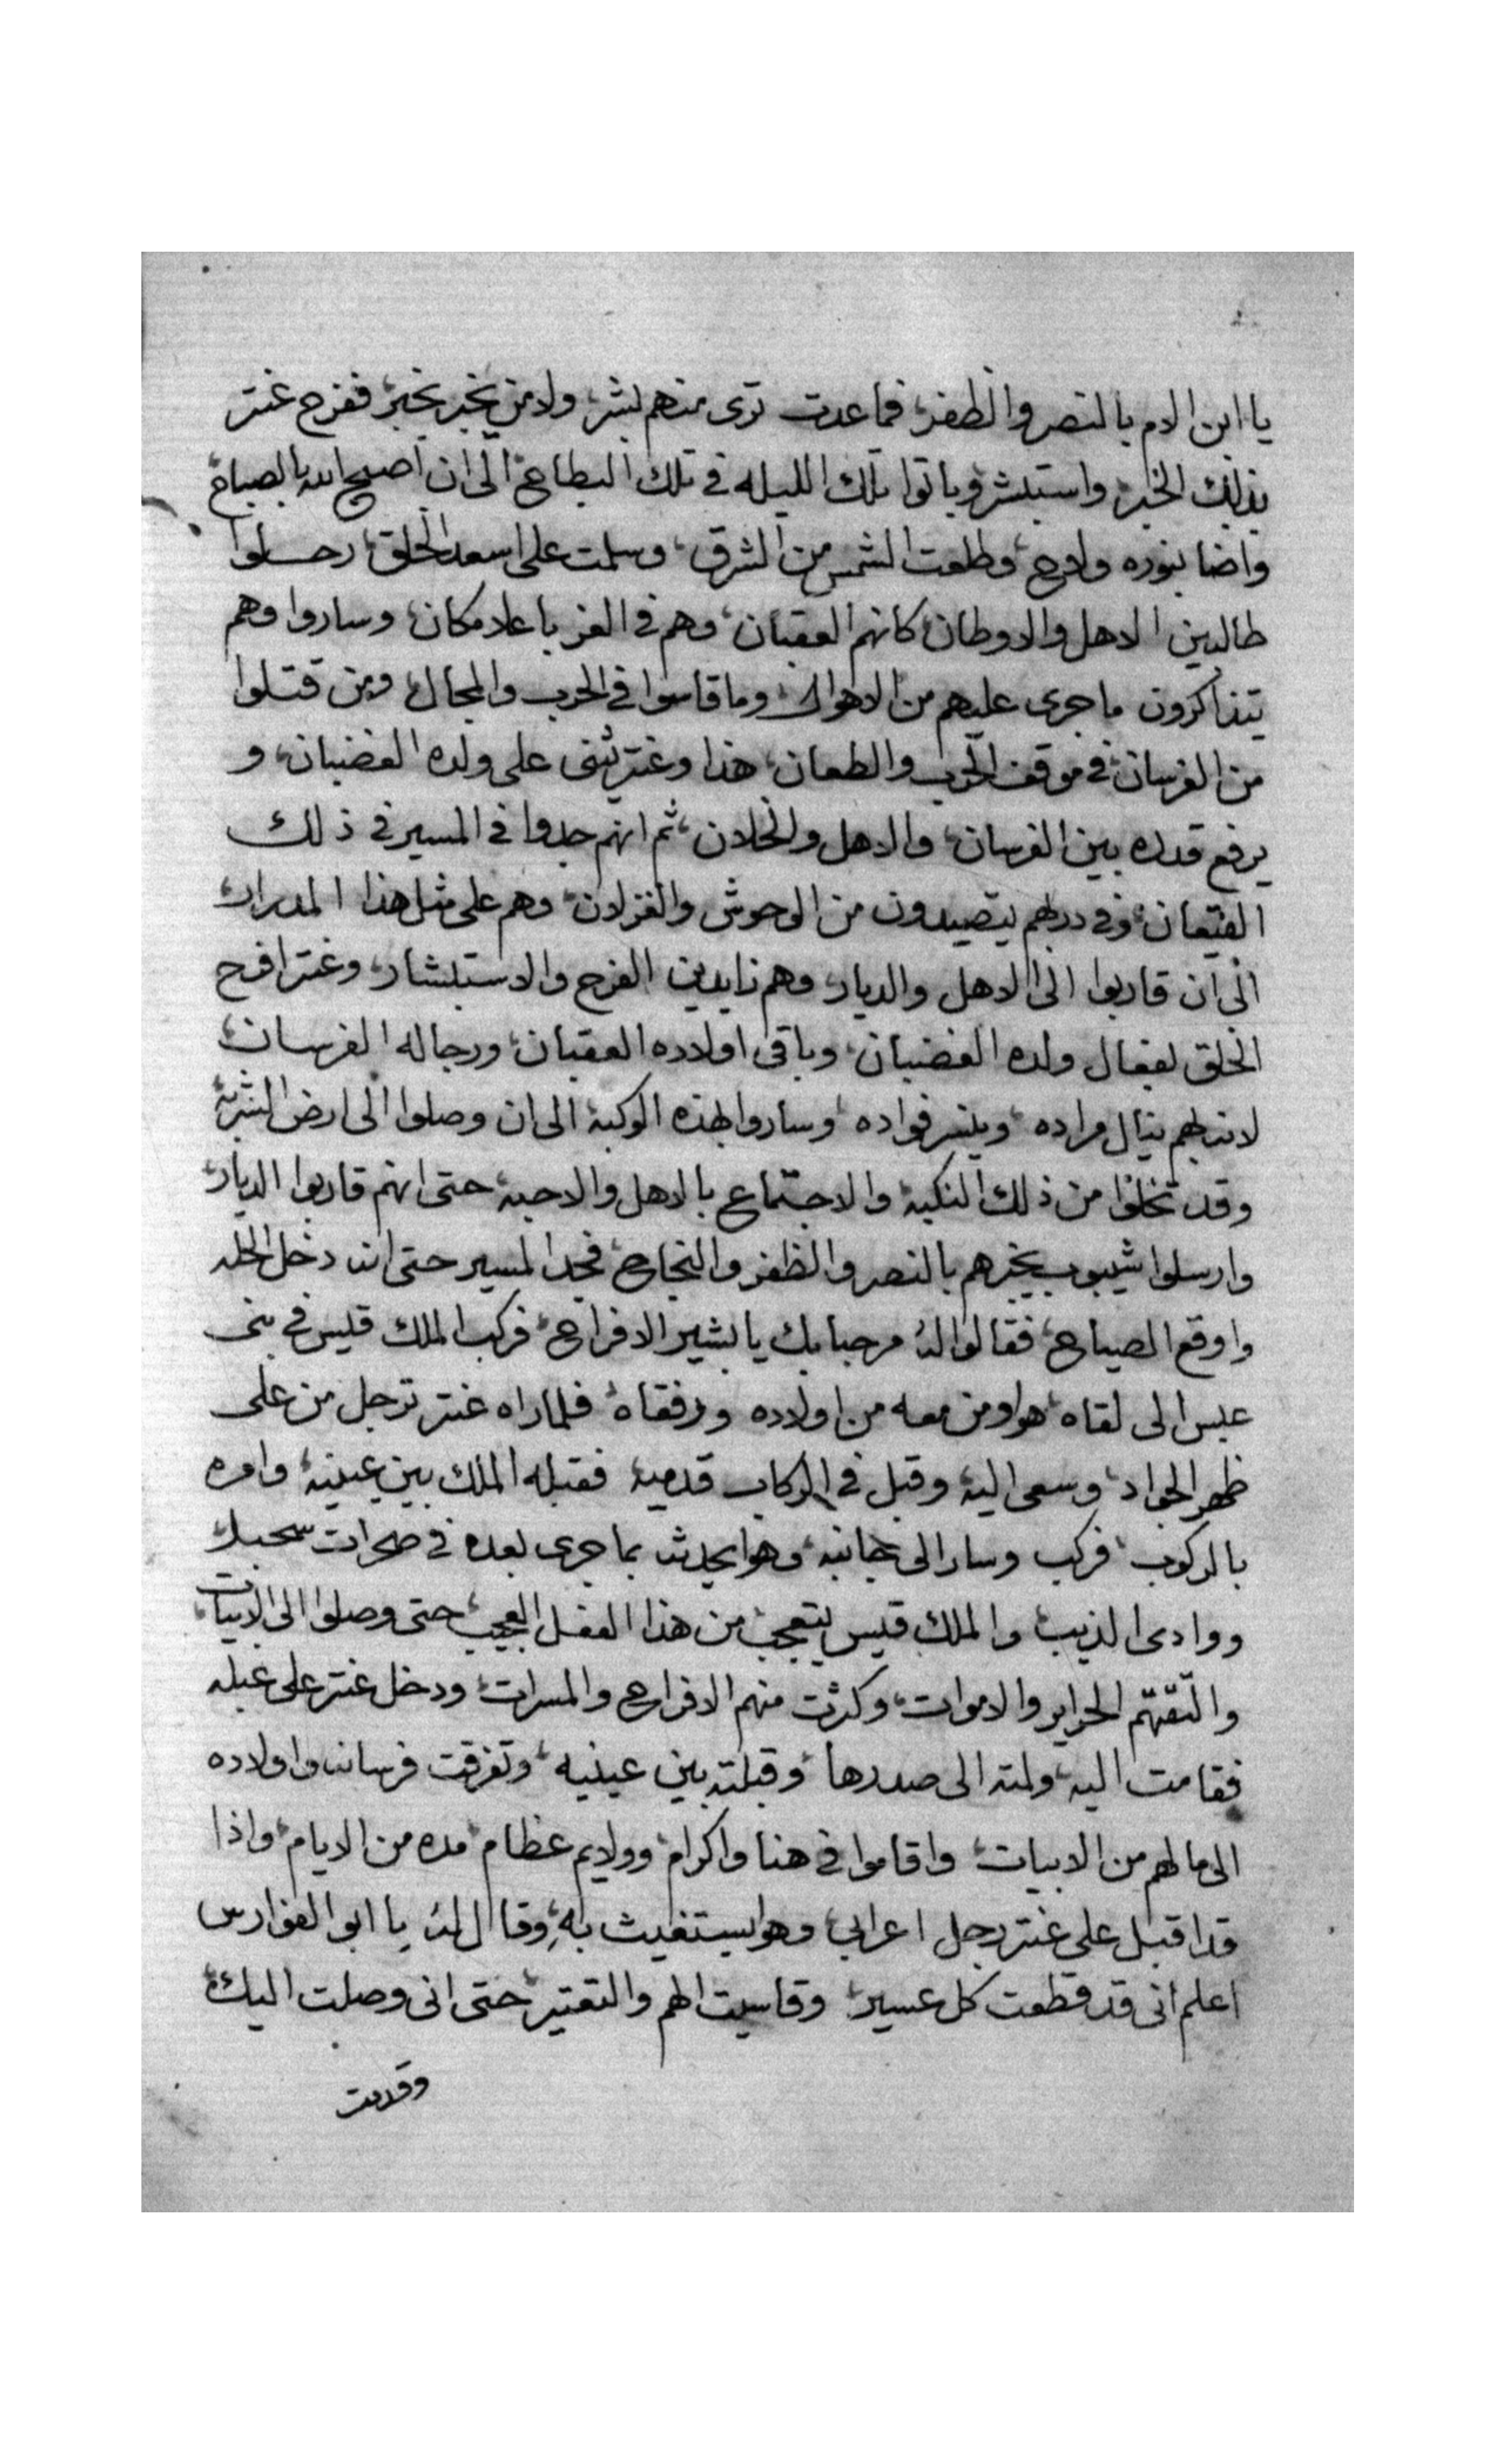 يا ابن الام بالنصر والظفر، فما عدت ترى منهم بشر، ولا من يخبر بخبر، ففرح عنتر
بذلك الخبر، واستبشر، وباتوا تلك الليله في تلك البطاح، الى ان اصبح الله بالصباح،
واضا بنوره ولاح، وطلعت الشمس من الشرق، وسلمت على اسعد الخلق، رحلوا
طالبين الاهل والاوطان، كانهم العقبان، وهم في العز باعلا مكان، وساروا وهم
يتذاكرون ما جرى عليهم من الاهوال، وما قاسوا في الحرب والمجال، ومن قتلوا
من الفرسان، في موقف الحرب والطعان، هذا وعنتر يثنى على ولده الغضبان، و
يرفع قدره بين الفرسان، والاهل والخلان، ثم انهم جدوا في المسير في ذلك
القيعان، وفي دربهم يتصيدون من الوحوش والغزلان، وهم على مثل هذا المدرار،
الى ان قاربوا الى الاهل والديار، وهم زايدين الفرح والاستبشار، وعنتر افرح
الخلق بفعال ولده الغضبان، وباقى اولاده العقبان، ورجاله الفرسان،
لانه بهم ينال مراده، ويسر فواده، وساروا بهذه الوكبة الى ان وصلوا الى ارض الشربة،
وقد تخلوا من ذلك النكبة، والاجتماع بالاهل والاحبه، حتى انهم قاربوا الديار،
وارسلوا شيبوب يخبرهم بالنصر والظفر والنجاح، فجد المسير حتى انه دخل الحله
واوقع الصياح، فقالوا له مرحبا بك يا بشير الافراح، فركب الملك قيس في بنى
عبس الى لقاه، هو ومن معه من اولاده ورفقاه، فلما راه عنتر ترجل من على
ظهر الجواد، وسعى اليه وقبل في الركاب قدميه، فقبله الملك بين عينيه، وامره
بالركوب، فركب وسار الى جانبه، وهو يحدثه بما جرى بعده في صحرات سحبل
ووادى الذيب، والملك قيس يتعجب من هذا الفعل العجيب، حتى وصلوا الى الابيات،
والتقتهم الحراير والاموات، وكثرت منهم الافراح والمسرات، ودخل عنتر على عبله
فقامت اليه، ولمته الى صدرها، وقبلته بين عينيه، وتفرقت فرسانه واولاده
الى ما لهم من الابيات، واقاموا في هنا واكرام، وولايم عظام، مده من الايام، واذا
قد اقبل على عنتر رجل اعرابي، وهو يستغيث به، وقال له يا ابو الفوارس
اعلم انى قد قطعت كل عسير، وقاسيت الهم والتعتير، حتى انى وصلت اليك،